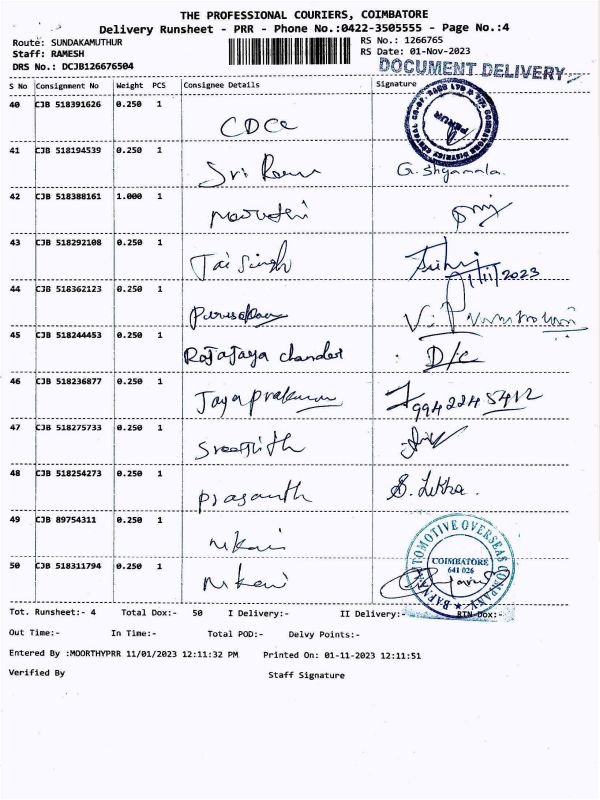 THE PROFESSIONAL COURIERS, COIMBATORE
Delivery Runsheet - PRR - Phone No.:0422-3505555 - Page No.:4
Route: SUNDAKAMUTHUR RS No.: 1266765
Staff: RAMESH RS Date: 01-Nov-2023
DRS No.: DCJB126676504 DOCUMENT DELIVERY
S No Consignment No Weight PCS Consignee Details Signature
40 CJB 518391626 0.250 1
PERUR
41 CJB 518194539 0.250 1
Sri Ram G. Shyamala.
42 CJB 518388161 1.000 1
43 CJB 518292108 0.250 1
Jai Singh
1/11/2023
44 CJB 518362123 0.250 1
45 CJB 518244453 0.250 1
Rajajaya chander D/C
46 CJB 518236877 0.250 1
Jayaprakash 9942245412
47 CJB 518275733 0.250 1
Sreejith
48 CJB 518254273 0.250 1
Prasanth S. Lekha.
49 CJB 89754311 0.250 1
AUTOMOTIVE OVERSEAS COMPANY
COIMBATORE
641 026
50 CJB 518311794 0.250 1
Tot. Runsheet:- 4 Total Dox:- 50 I Delivery:- II Delivery:- RTN Dox:-
Out Time:- In Time:- Total POD:- Delvy Points:-
Entered By :MOORTHYPRR 11/01/2023 12:11:32 PM Printed On: 01-11-2023 12:11:51
Verified By Staff Signature